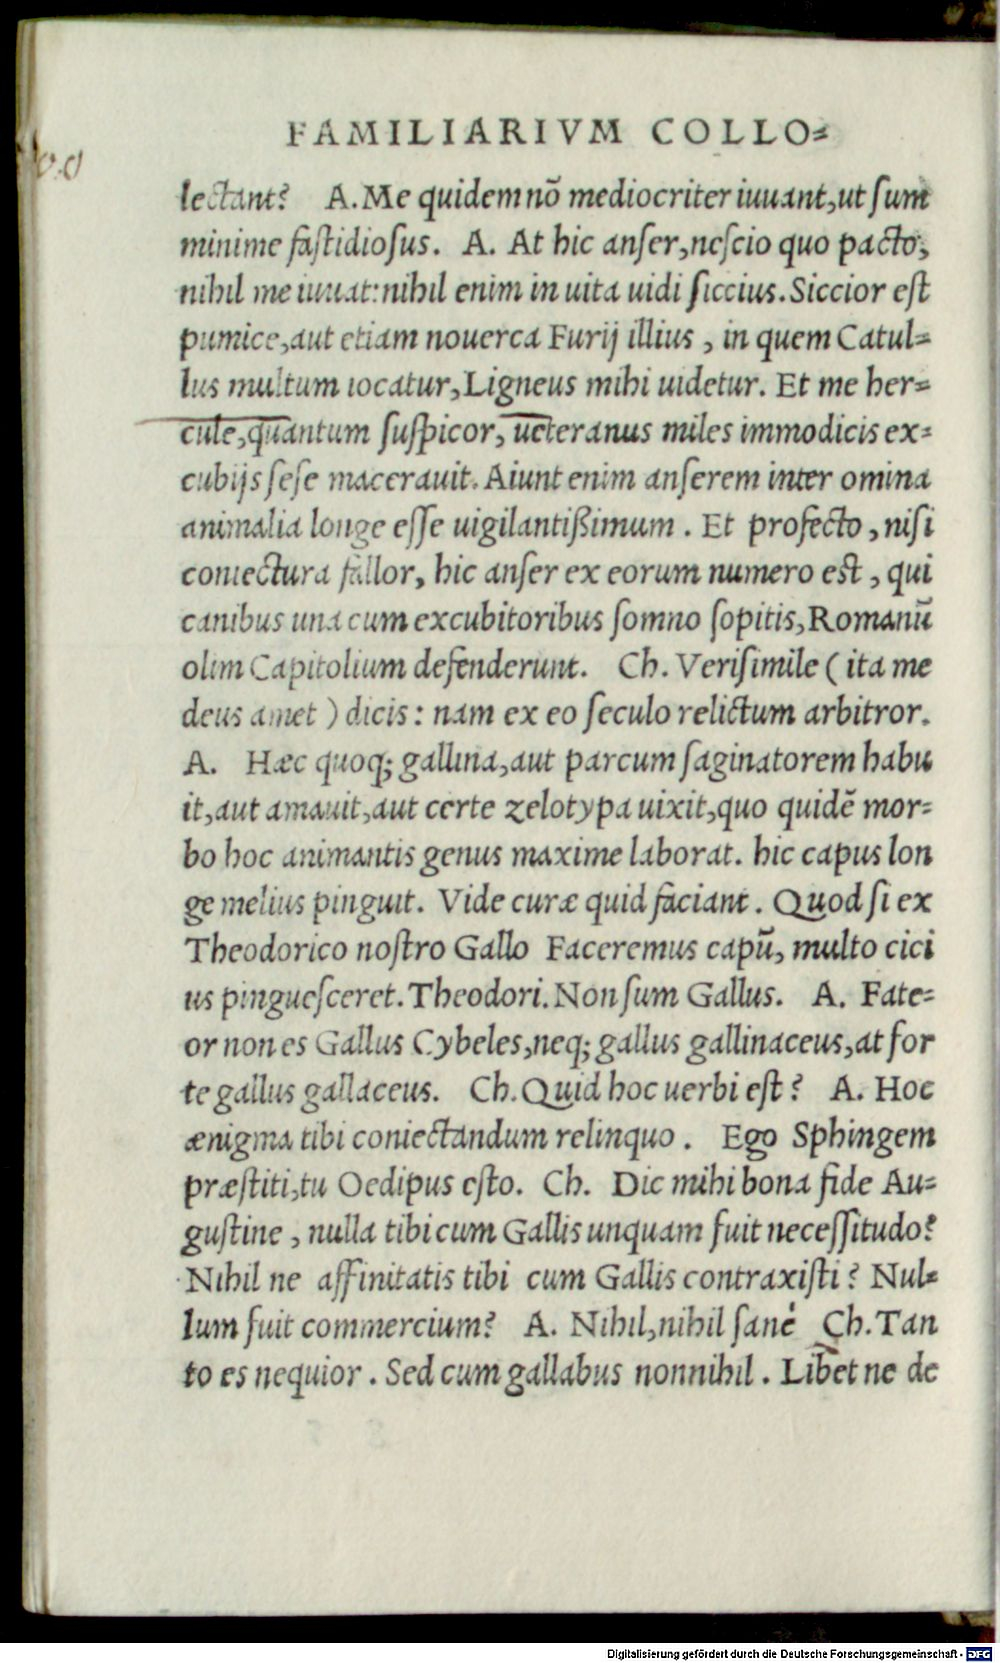 FAMILIARIVM COLLO⸗
lectant? A. Me quidem nō mediocriter iuuant, ut sum
minime fastidiosus. A. At hic anser, nescio quo pacto,
nihil me iuuat: nihil enim in uita uidi siccius. Siccior est
pumice, aut etiam nouerca Furij illius, in quem Catul⸗
lus multum iocatur, Ligneus mihi uidetur. Et me her⸗
cule, quantum suspicor, ueteranus miles immodicis ex⸗
cubijs sese macerauit. Aiunt enim anserem inter omina
animalia longe esse uigilantißimum. Et profecto, nisi
coniectura fallor, hic anser ex eorum numero est, qui
canibus una cum excubitoribus somno sopitis, Romanū
olim Capitolium defenderunt. Ch. Verisimile (ita me
deus amet) dicis: nam ex eo seculo relictum arbitror.
A. Hæc quoq; gallina, aut parcum saginatorem habu
it, aut amauit, aut certe zelotypa uixit, quo quidē mor⸗
bo hoc animantis genus maxime laborat. hic capus lon
ge melius pinguit. Vide curæ quid faciant. Quod si ex
Theodorico nostro Gallo Faceremus capū, multo cici
us pinguesceret. Theodori. Non sum Gallus. A. Fate⸗
or non es Gallus Cybeles, neq; gallus gallinaceus, at for
te gallus gallaceus. Ch. Quid hoc uerbi est? A. Hoc
ænigma tibi coniectandum relinquo. Ego Sphingem
præstiti, tu Oedipus esto. Ch. Dic mihi bona fide Au⸗
gustine, nulla tibi cum Gallis unquam fuit necessitudo?
Nihil ne affinitatis tibi cum Gallis contraxisti? Nul⸗
lum fuit commercium? A. Nihil, nihil sané Ch. Tan
to es nequior. Sed cum gallabus nonnihil. Libet ne de
Digitalisierung gefördert durch die Deutsche Forschungsgemeinschaft - DFG